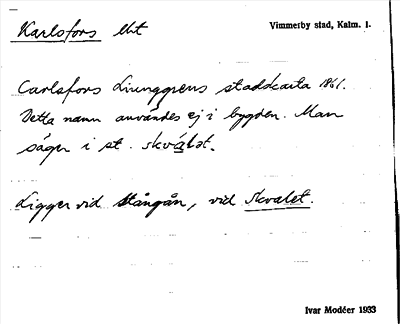 Karlsfors Vimmerby stad, Kalm. l.
Carlsfors Ljunggrens stadskarta 1861.
Detta namn användes ej i bygden. Man
säger i st. skválət.
Ligger vid Stångån, vid Skvalet.
Ivar Modéer 1933